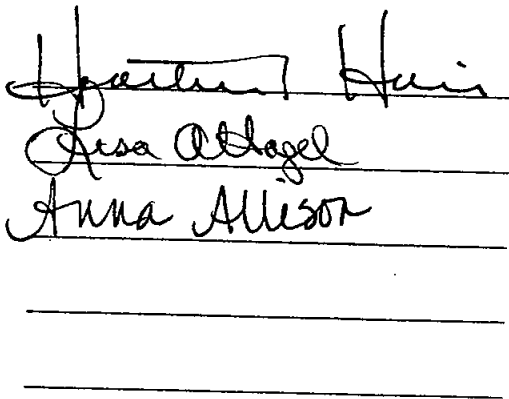 Heather Hair
Lisa A Hagel
Anna Allison